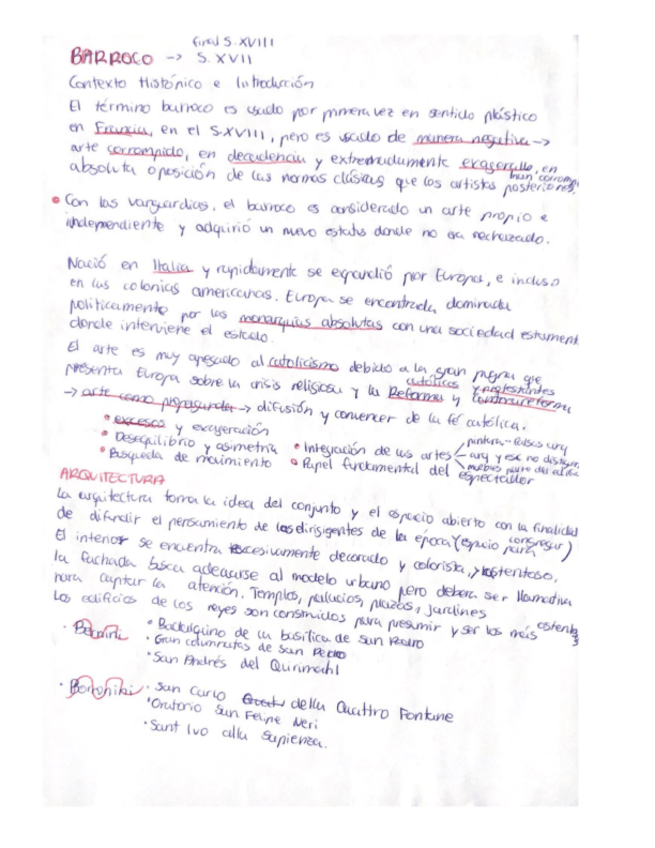 final S.XVIII
BARROCO -> S. XVII
Contexto Histórico e Introducción
El término barroco es usado por primera vez en sentido plástico
en Francia, en el S.XVIII, pero es usado de manera negativa ->
arte corrompido, en decadencia y extremadamente exagerado, en
absoluta oposición de las normas clásicas que los artistas posteriores.
• Con las vanguardias, el barroco es considerado un arte propio e
independiente y adquirió un nuevo estatus donde no era rechazado.
Nació en Italia y rapidamente se expandió por Europa, e incluso
en las colonias americanas. Europa se encontraba dominada
politicamente por las monarquias absolutas con una sociedad estament
donde interviene el estado.
El arte es muy apegado al catolicismo debido a la gran pugna que
católicos y protestantes
presenta Europa sobre la crisis religiosa y la Reforma y Contrareforma
-> arte como propaganda -> difusión y convencer de la fé católica.
• excesos y exageración
• Desequilibrio y asimetria • Integración de las artes
• Busqueda de movimiento • Papel fundamental del espectador
ARQUITECTURA
La arquitectura toma la idea del conjunto y el espacio abierto con la finalidad
de difundir el pensamiento de los dirisigentes de la época (espacio para congregar)
El interior se encuentra excesivamente decorado y colorista, ostentoso,
la fachada busca adecuarse al modelo urbano pero debera ser llamativa
para captar la atención. Templos, palacios, plazas, jardines
Los edificios de los reyes son construidos para presumir y ser los más
• Bernini • Baldaquino de la basilica de San Pedro
• Gran columnata de San Pedro
• San Andrés del Quirinahl
• Borromini • San Carlo della Quattro Fontane
• Oratorio San Felipe Neri
• Sant Ivo alla Sapienza.